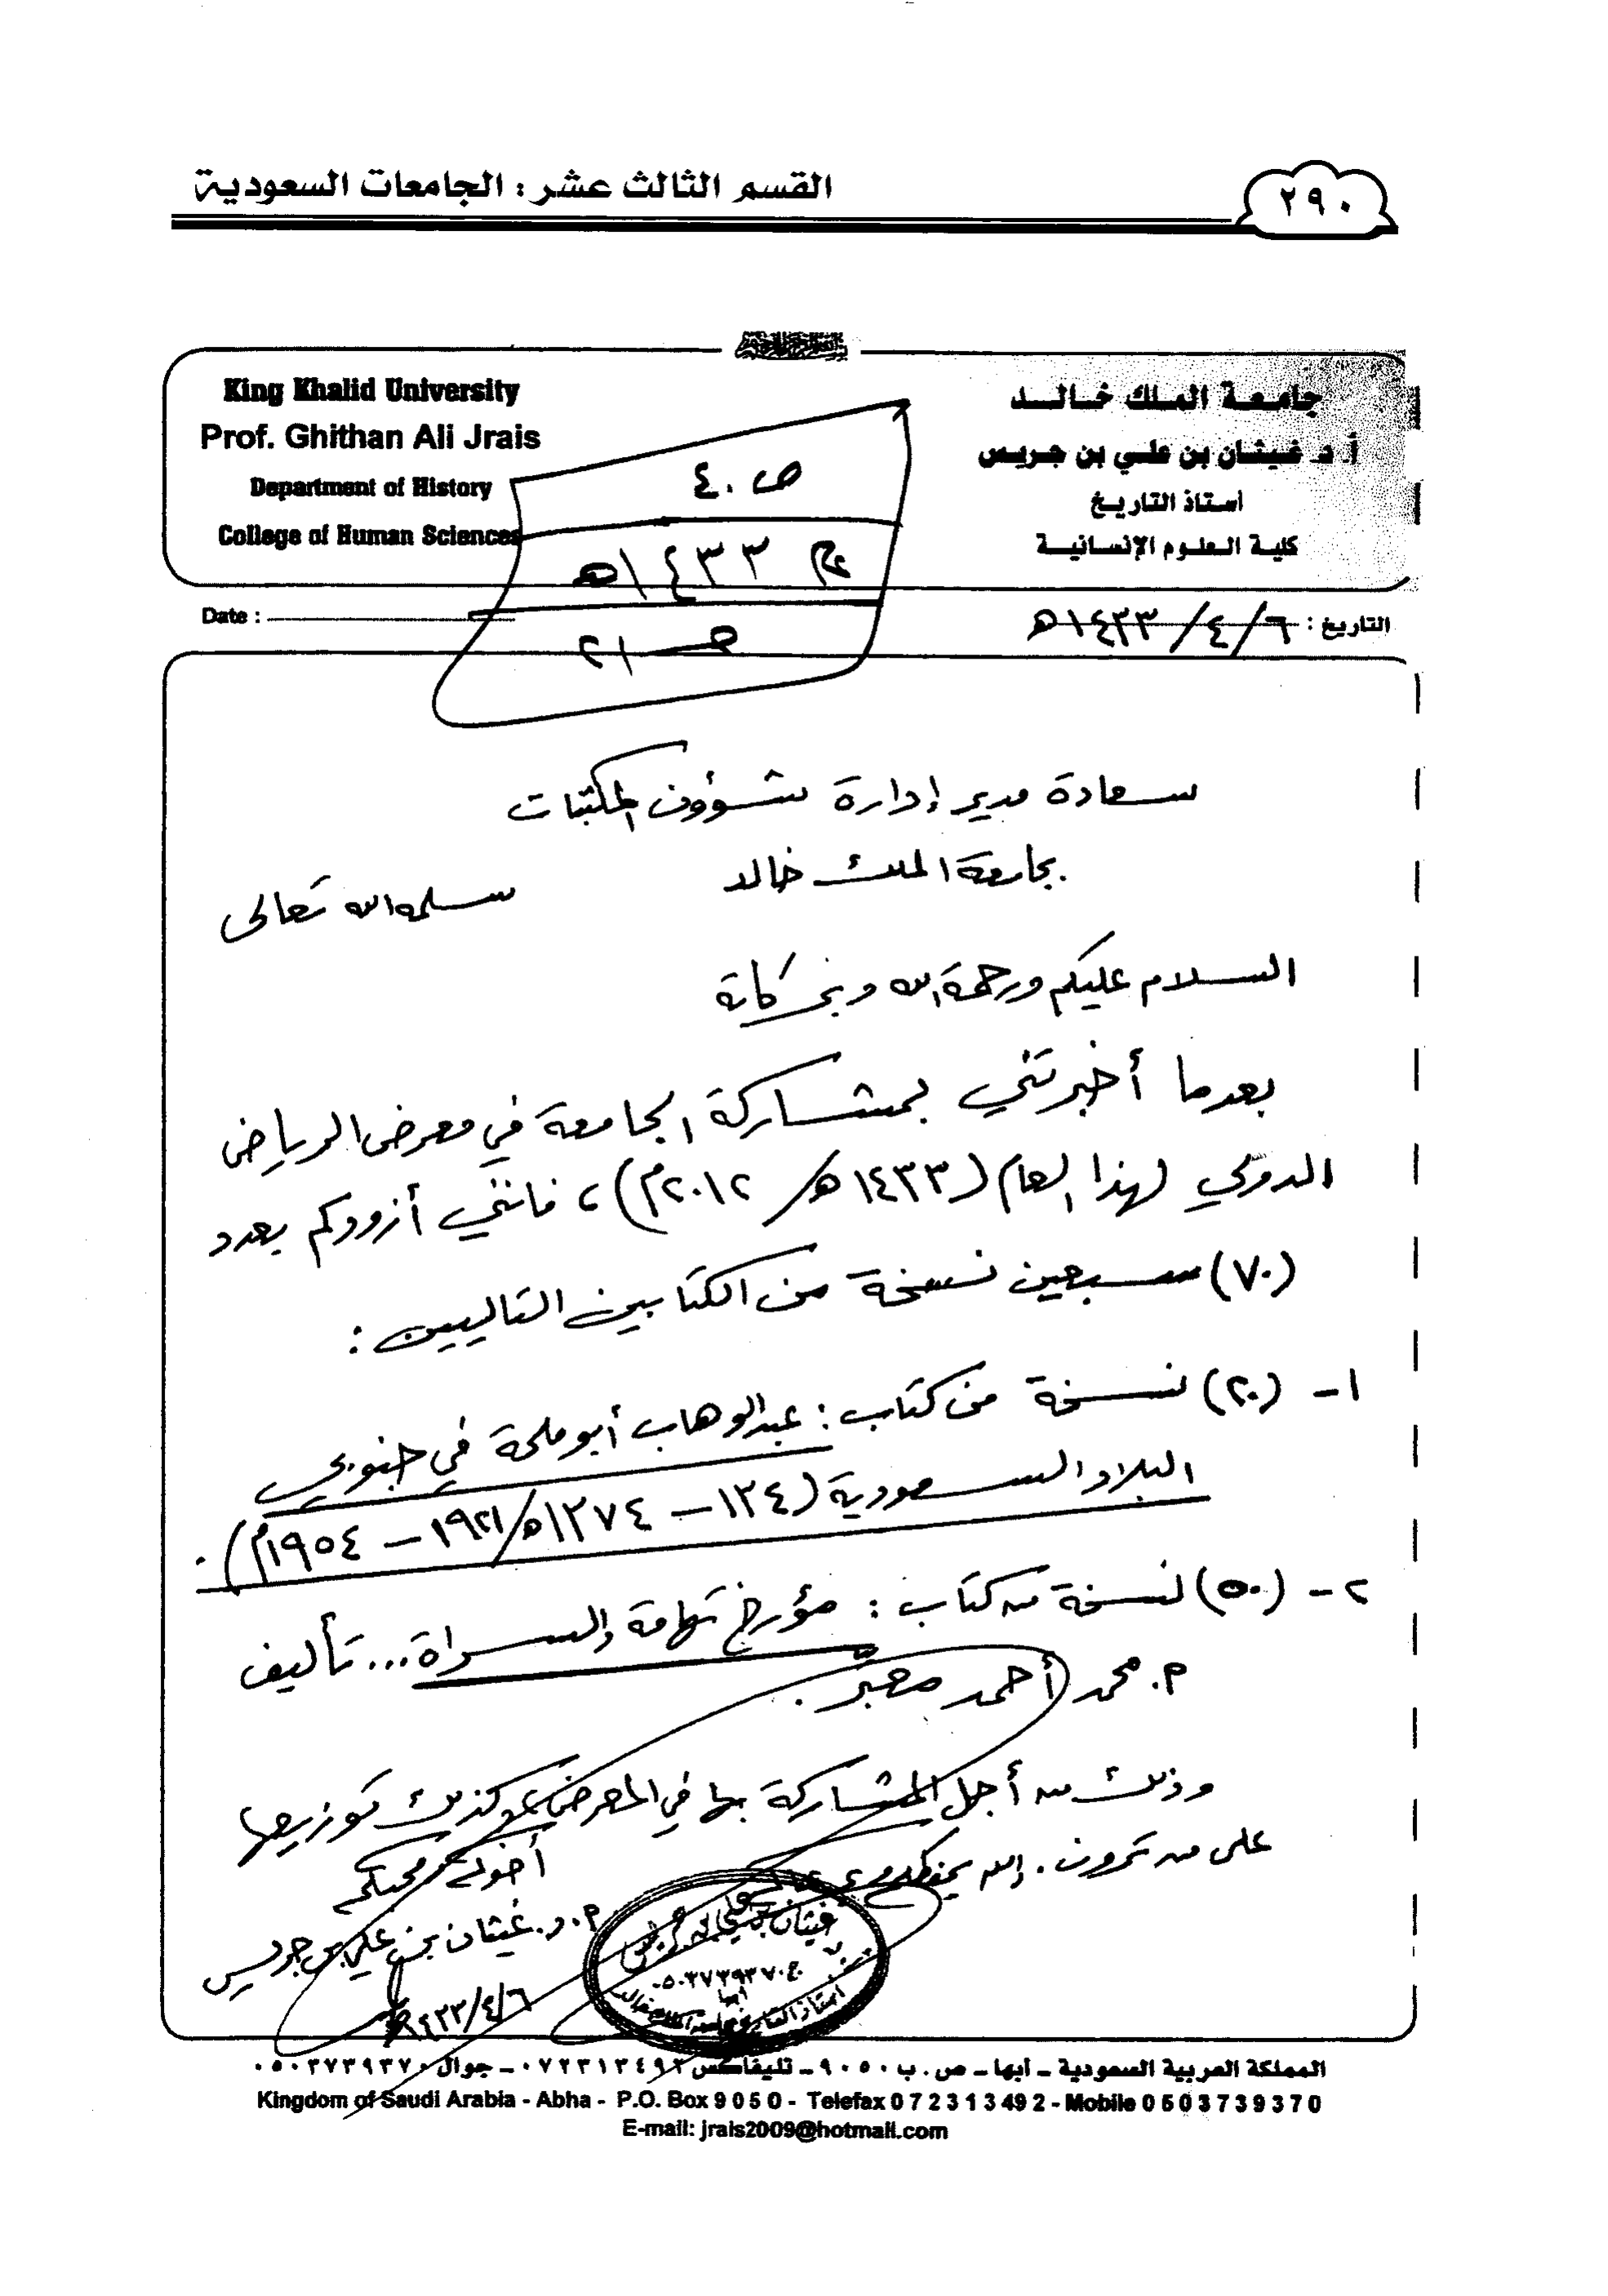 القسم الثالث عشر : الجامعات السعودية
٢٩٠
King Khalid University
Prof. Ghithan Ali Jrais
Department of History
College of Human Sciences
جامعة الملك خالد
أ. د. غيثان بن علي بن جريس
أستاذ التاريخ
كلية العلوم الإنسانية
ص ٤٠
١٤٣٣هـ
٢١
Date :
التاريخ : ٦/٤/١٤٣٣هـ
سعادة مدير إدارة شؤون المكتبات
بجامعة الملك خالد
سلمه الله تعالى
السلام عليكم ورحمة الله وبركاته
بعدما أخبرتني بمشاركة الجامعة في معرض الرياض
الدولي لهذا العام (١٤٣٣هـ/ ٢٠١٢م)، فانني أزودكم بعدد
(٧٠) سبعين نسخة من الكتابين التاليين :
١- (٢٠) نسخة من كتاب : عبدالوهاب أبو ملحة في جنوبي
البلاد السعودية (١٣٤٠ - ١٣٧٤هـ/ ١٩٢١ - ١٩٥٤م).
٢- (٥٠) نسخة من كتاب : مؤرخ تهامة والسراة... تأليف
م. محمد أحمد معبّر.
وذلك من أجل المشاركة بها في المعرض، وكذلك توزيعها
على من ترون. والله يحفظكم
أخوكم ومحبكم
أ.د. غيثان بن علي بن جريس
٦/٤/١٤٣٣هـ
غيثان بن علي بن جريس
٠٥٠٣٧٣٩٣٧٠
أبها
أستاذ التاريخ بجامعة الملك خالد
المملكة العربية السعودية - أبها - ص . ب ٩٠٥٠ - تليفاكس ٠٧٢٣١٣٤٩٢ - جوال ٠٥٠٣٧٣٩٣٧٠
Kingdom of Saudi Arabia - Abha - P.O. Box 9 0 5 0 - Telefax 0 7 2 3 1 3 4 9 2 - Mobile 0 5 0 3 7 3 9 3 7 0
E-mail: jrais2009@hotmail.com